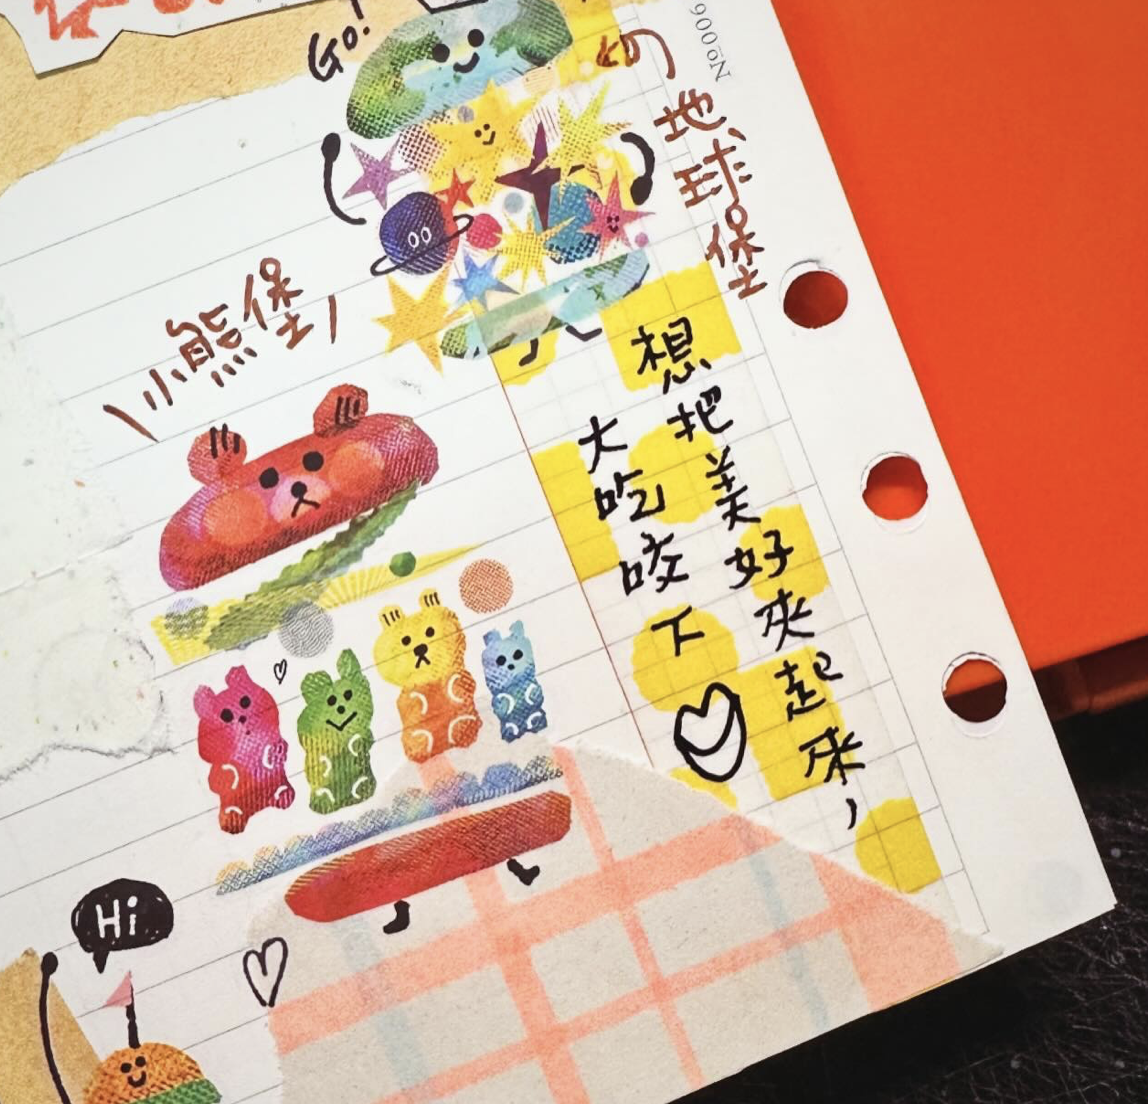 Go!
的地球堡
\小熊堡/
想把美好夾起來，
大吃咬下
Hi